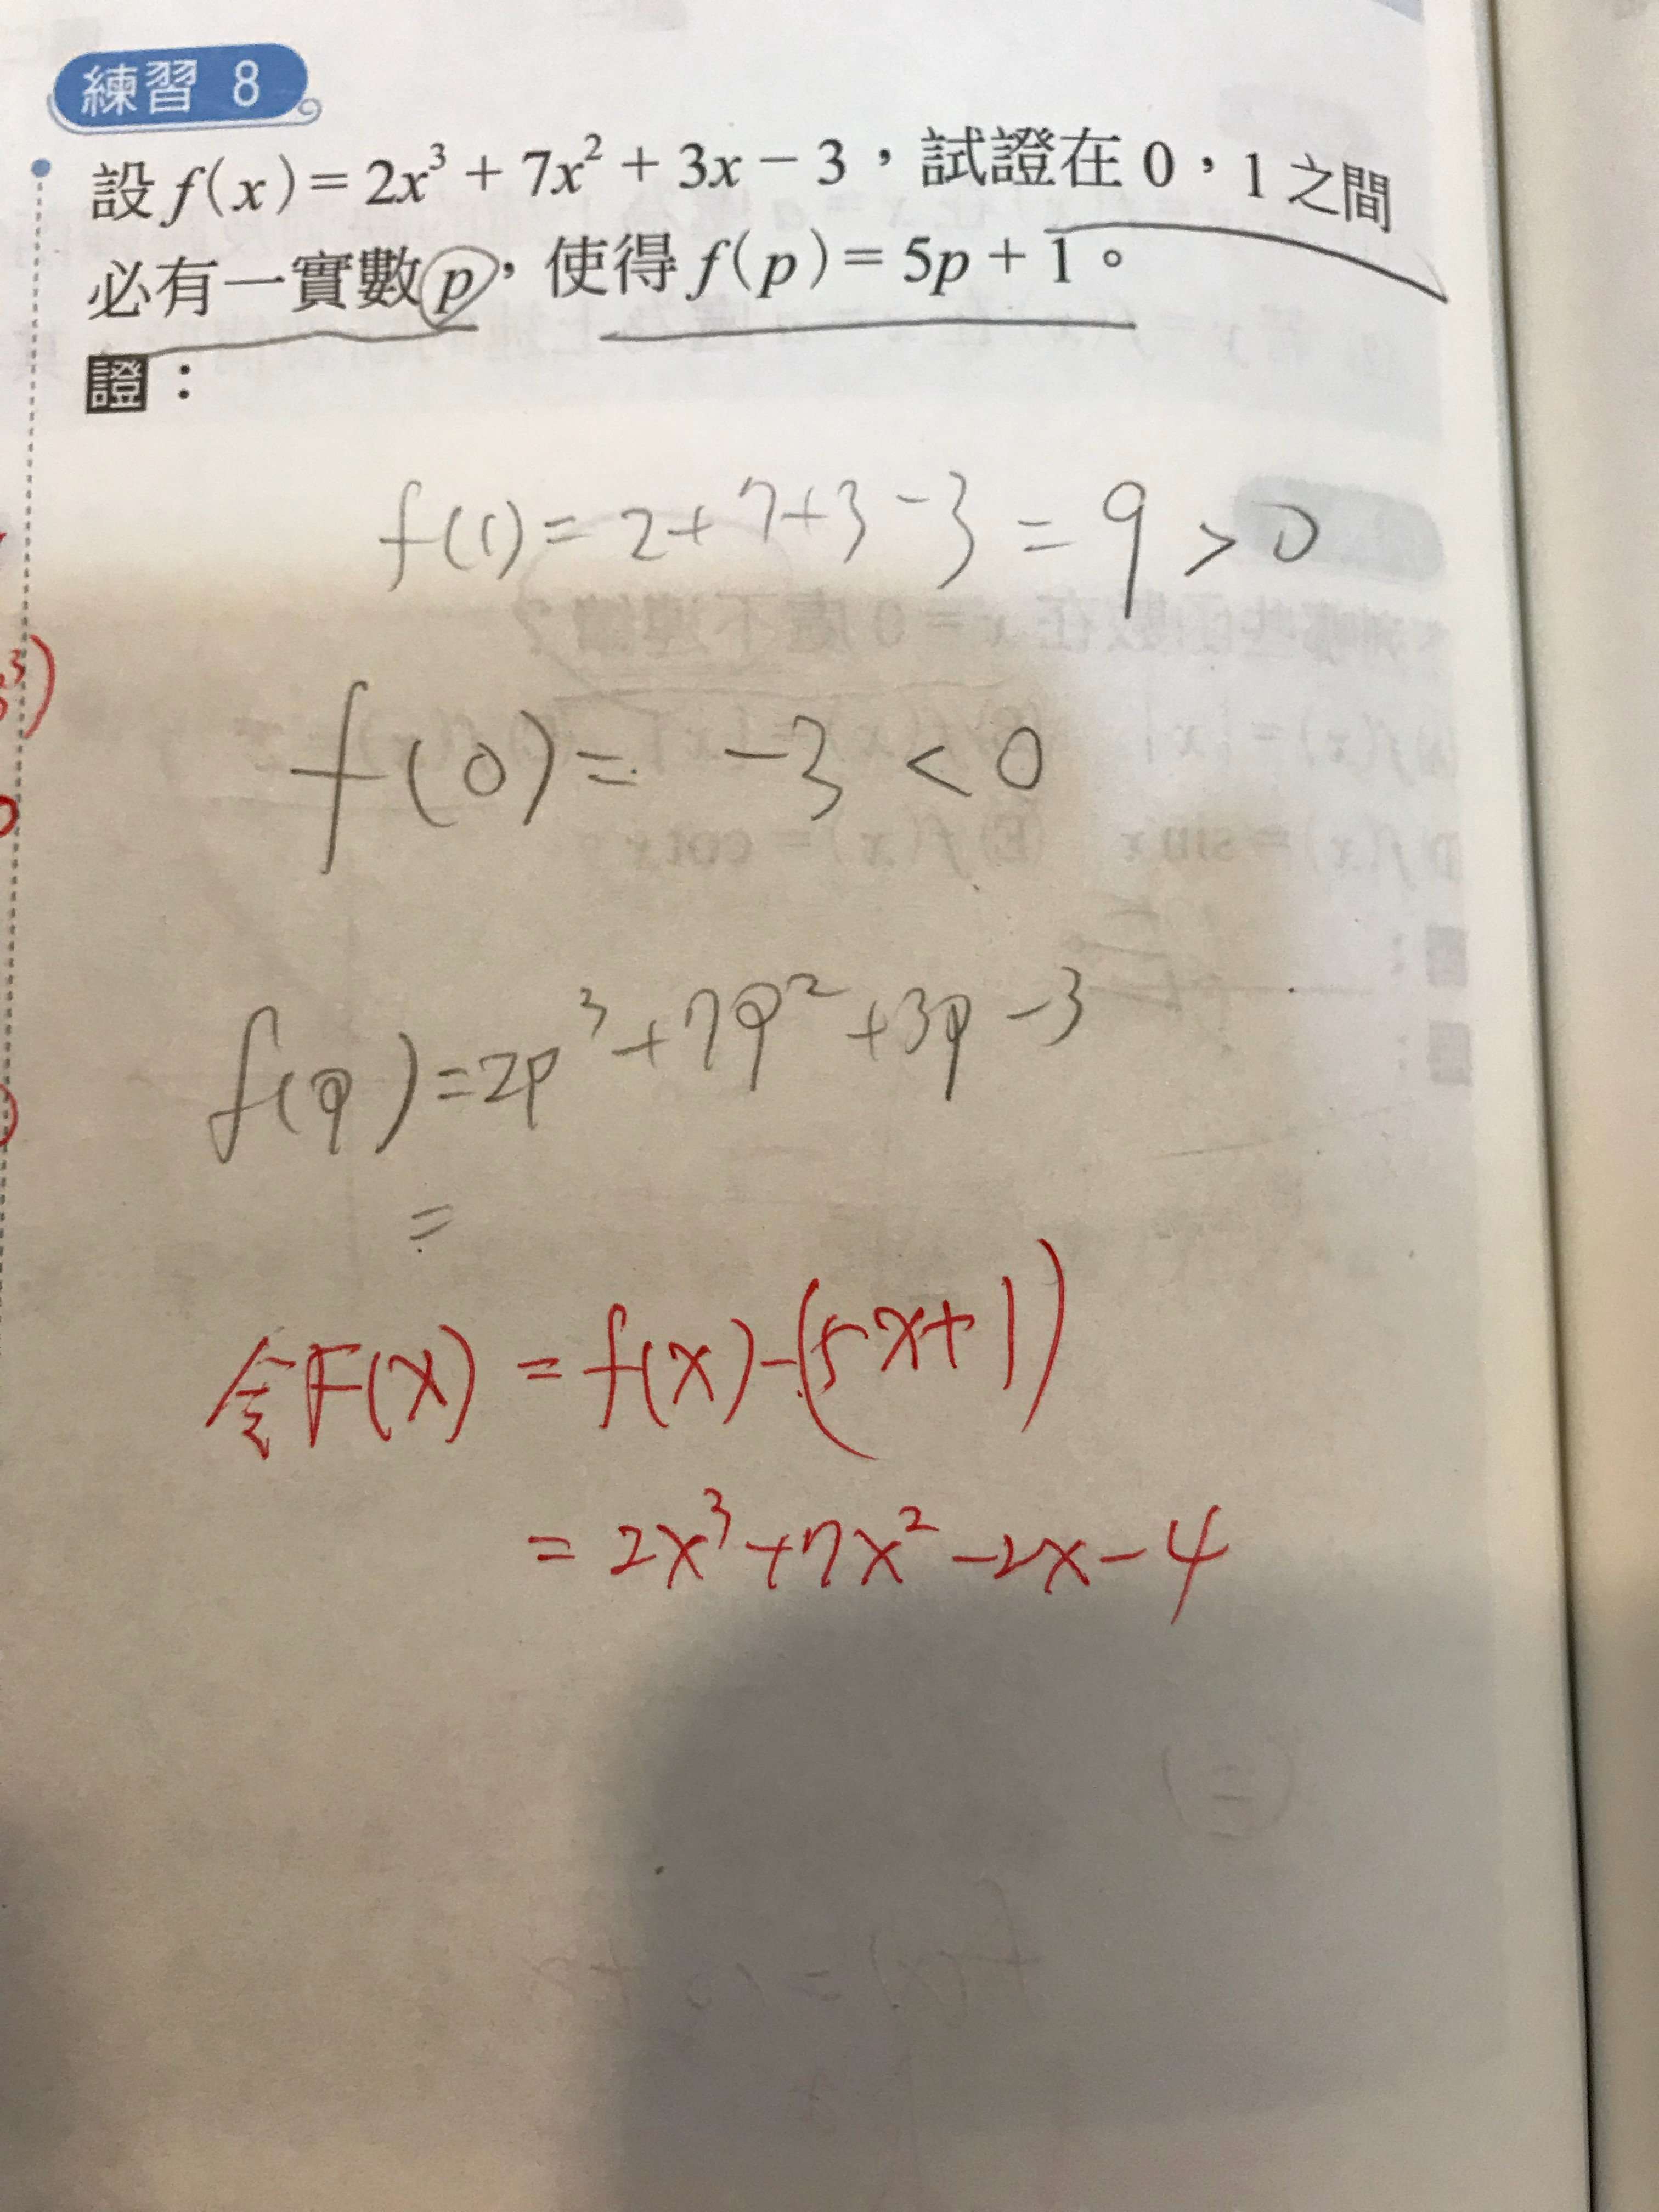 練習 8
設 f(x) = 2x³ + 7x² + 3x − 3，試證在 0，1 之間
必有一實數 p，使得 f(p) = 5p + 1。
證：
f(1) = 2+7+3-3 = 9 > 0
f(0) = -3 < 0
f(p) = 2p³+7p²+3p-3
=
令F(x) = f(x)-(5x+1)
= 2x³+7x²-2x-4